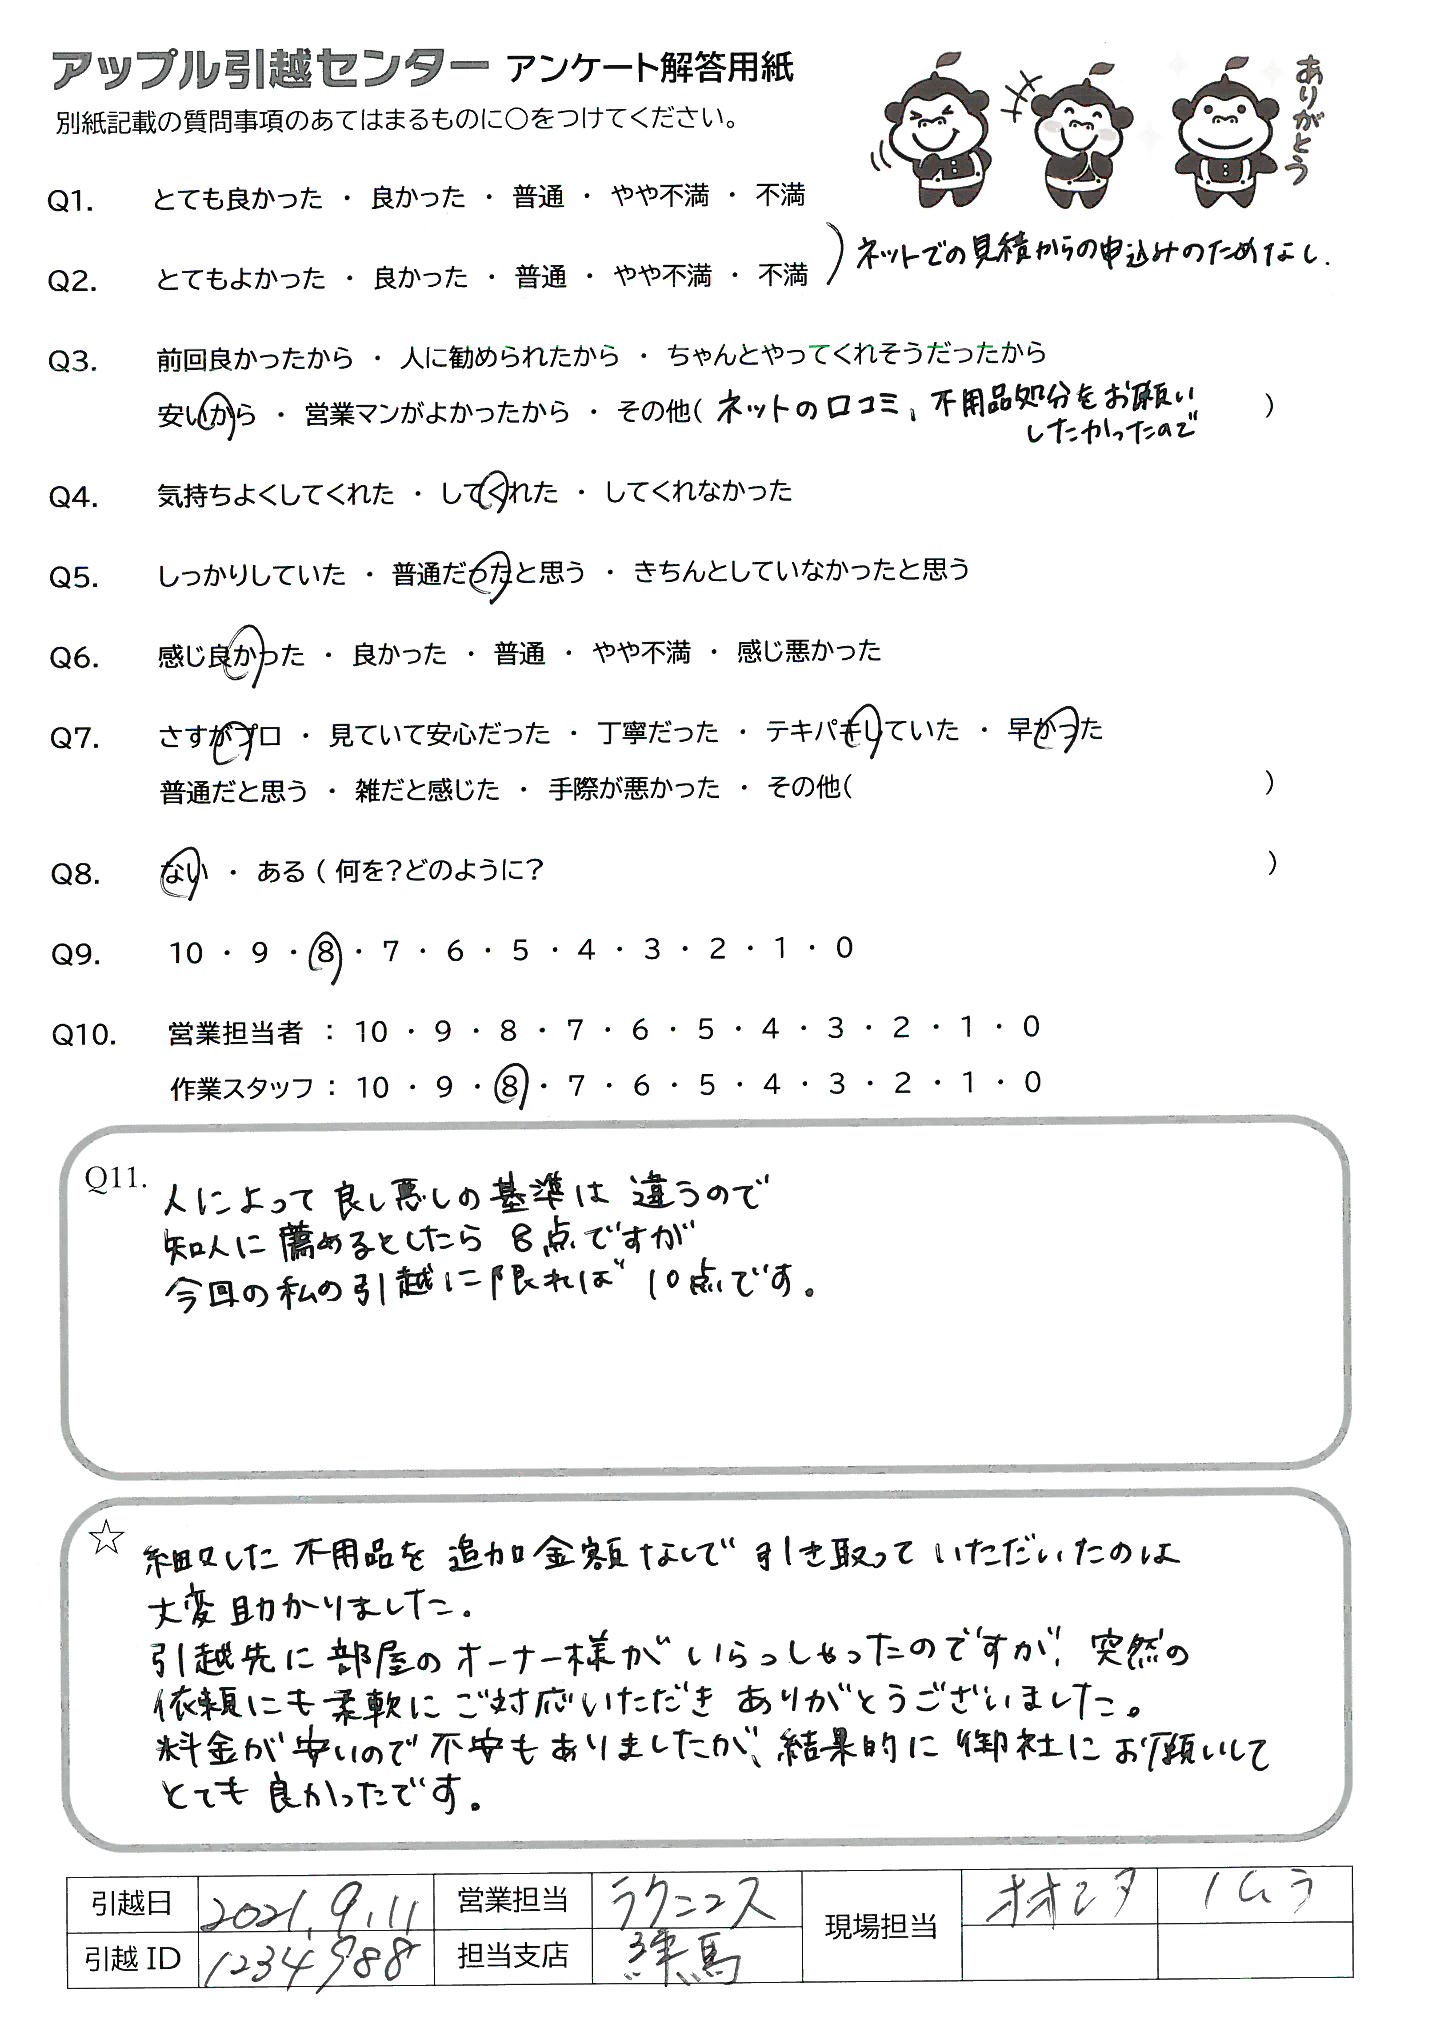 アップル引越センター アンケート解答用紙
別紙記載の質問事項のあてはまるものに○をつけてください。
ありがとう
Q1. とても良かった ・ 良かった ・ 普通 ・ やや不満 ・ 不満
Q2. とてもよかった ・ 良かった ・ 普通 ・ やや不満 ・ 不満
)ネットでの見積からの申込みのためなし.
Q3. 前回良かったから ・ 人に勧められたから ・ ちゃんとやってくれそうだったから
安いから ・ 営業マンがよかったから ・ その他( ネットの口コミ、不用品処分をお願い )
したかったので
Q4. 気持ちよくしてくれた ・ してくれた ・ してくれなかった
Q5. しっかりしていた ・ 普通だったと思う ・ きちんとしていなかったと思う
Q6. 感じ良かった ・ 良かった ・ 普通 ・ やや不満 ・ 感じ悪かった
Q7. さすがプロ ・ 見ていて安心だった ・ 丁寧だった ・ テキパキしていた ・ 早かった
普通だと思う ・ 雑だと感じた ・ 手際が悪かった ・ その他( )
Q8. ない ・ ある ( 何を?どのように? )
Q9. 10 ・ 9 ・ 8 ・ 7 ・ 6 ・ 5 ・ 4 ・ 3 ・ 2 ・ 1 ・ 0
Q10. 営業担当者 : 10 ・ 9 ・ 8 ・ 7 ・ 6 ・ 5 ・ 4 ・ 3 ・ 2 ・ 1 ・ 0
作業スタッフ : 10 ・ 9 ・ 8 ・ 7 ・ 6 ・ 5 ・ 4 ・ 3 ・ 2 ・ 1 ・ 0
Q11. 人によって良し悪しの基準は違うので
知人に薦めるとしたら 8点ですが
今回の私の引越に限れば 10点です。
☆ 細々した不用品を追加金額なしで引き取っていただいたのは
大変助かりました。
引越先に部屋のオーナー様がいらっしゃったのですが、突然の
依頼にも柔軟にご対応いただきありがとうございました。
料金が安いので不安もありましたが、結果的に御社にお願いして
とても良かったです。
引越日 2021.9.11 営業担当 ラクニコス 現場担当 オオシタ イムラ
引越ID 1234988 担当支店 練馬